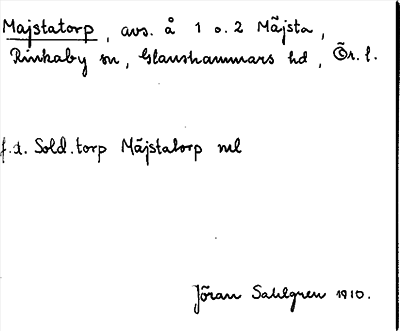 Majstatorp, avs. å 1 o. 2 Mäjsta,
Rinkaby sn, Glanshammars hd, Ör. l.
f.d. Sold.torp Mäjstatorp ml
Jöran Sahlgren 1910.